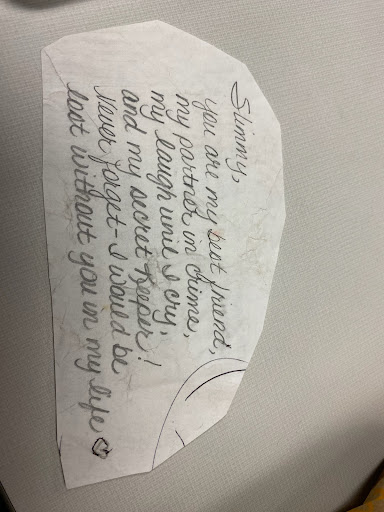 Slimmy,
you are my best friend,
my partner in crime,
my laugh until I cry,
and my secret keeper!
Never forget - I would be
lost without you in my life